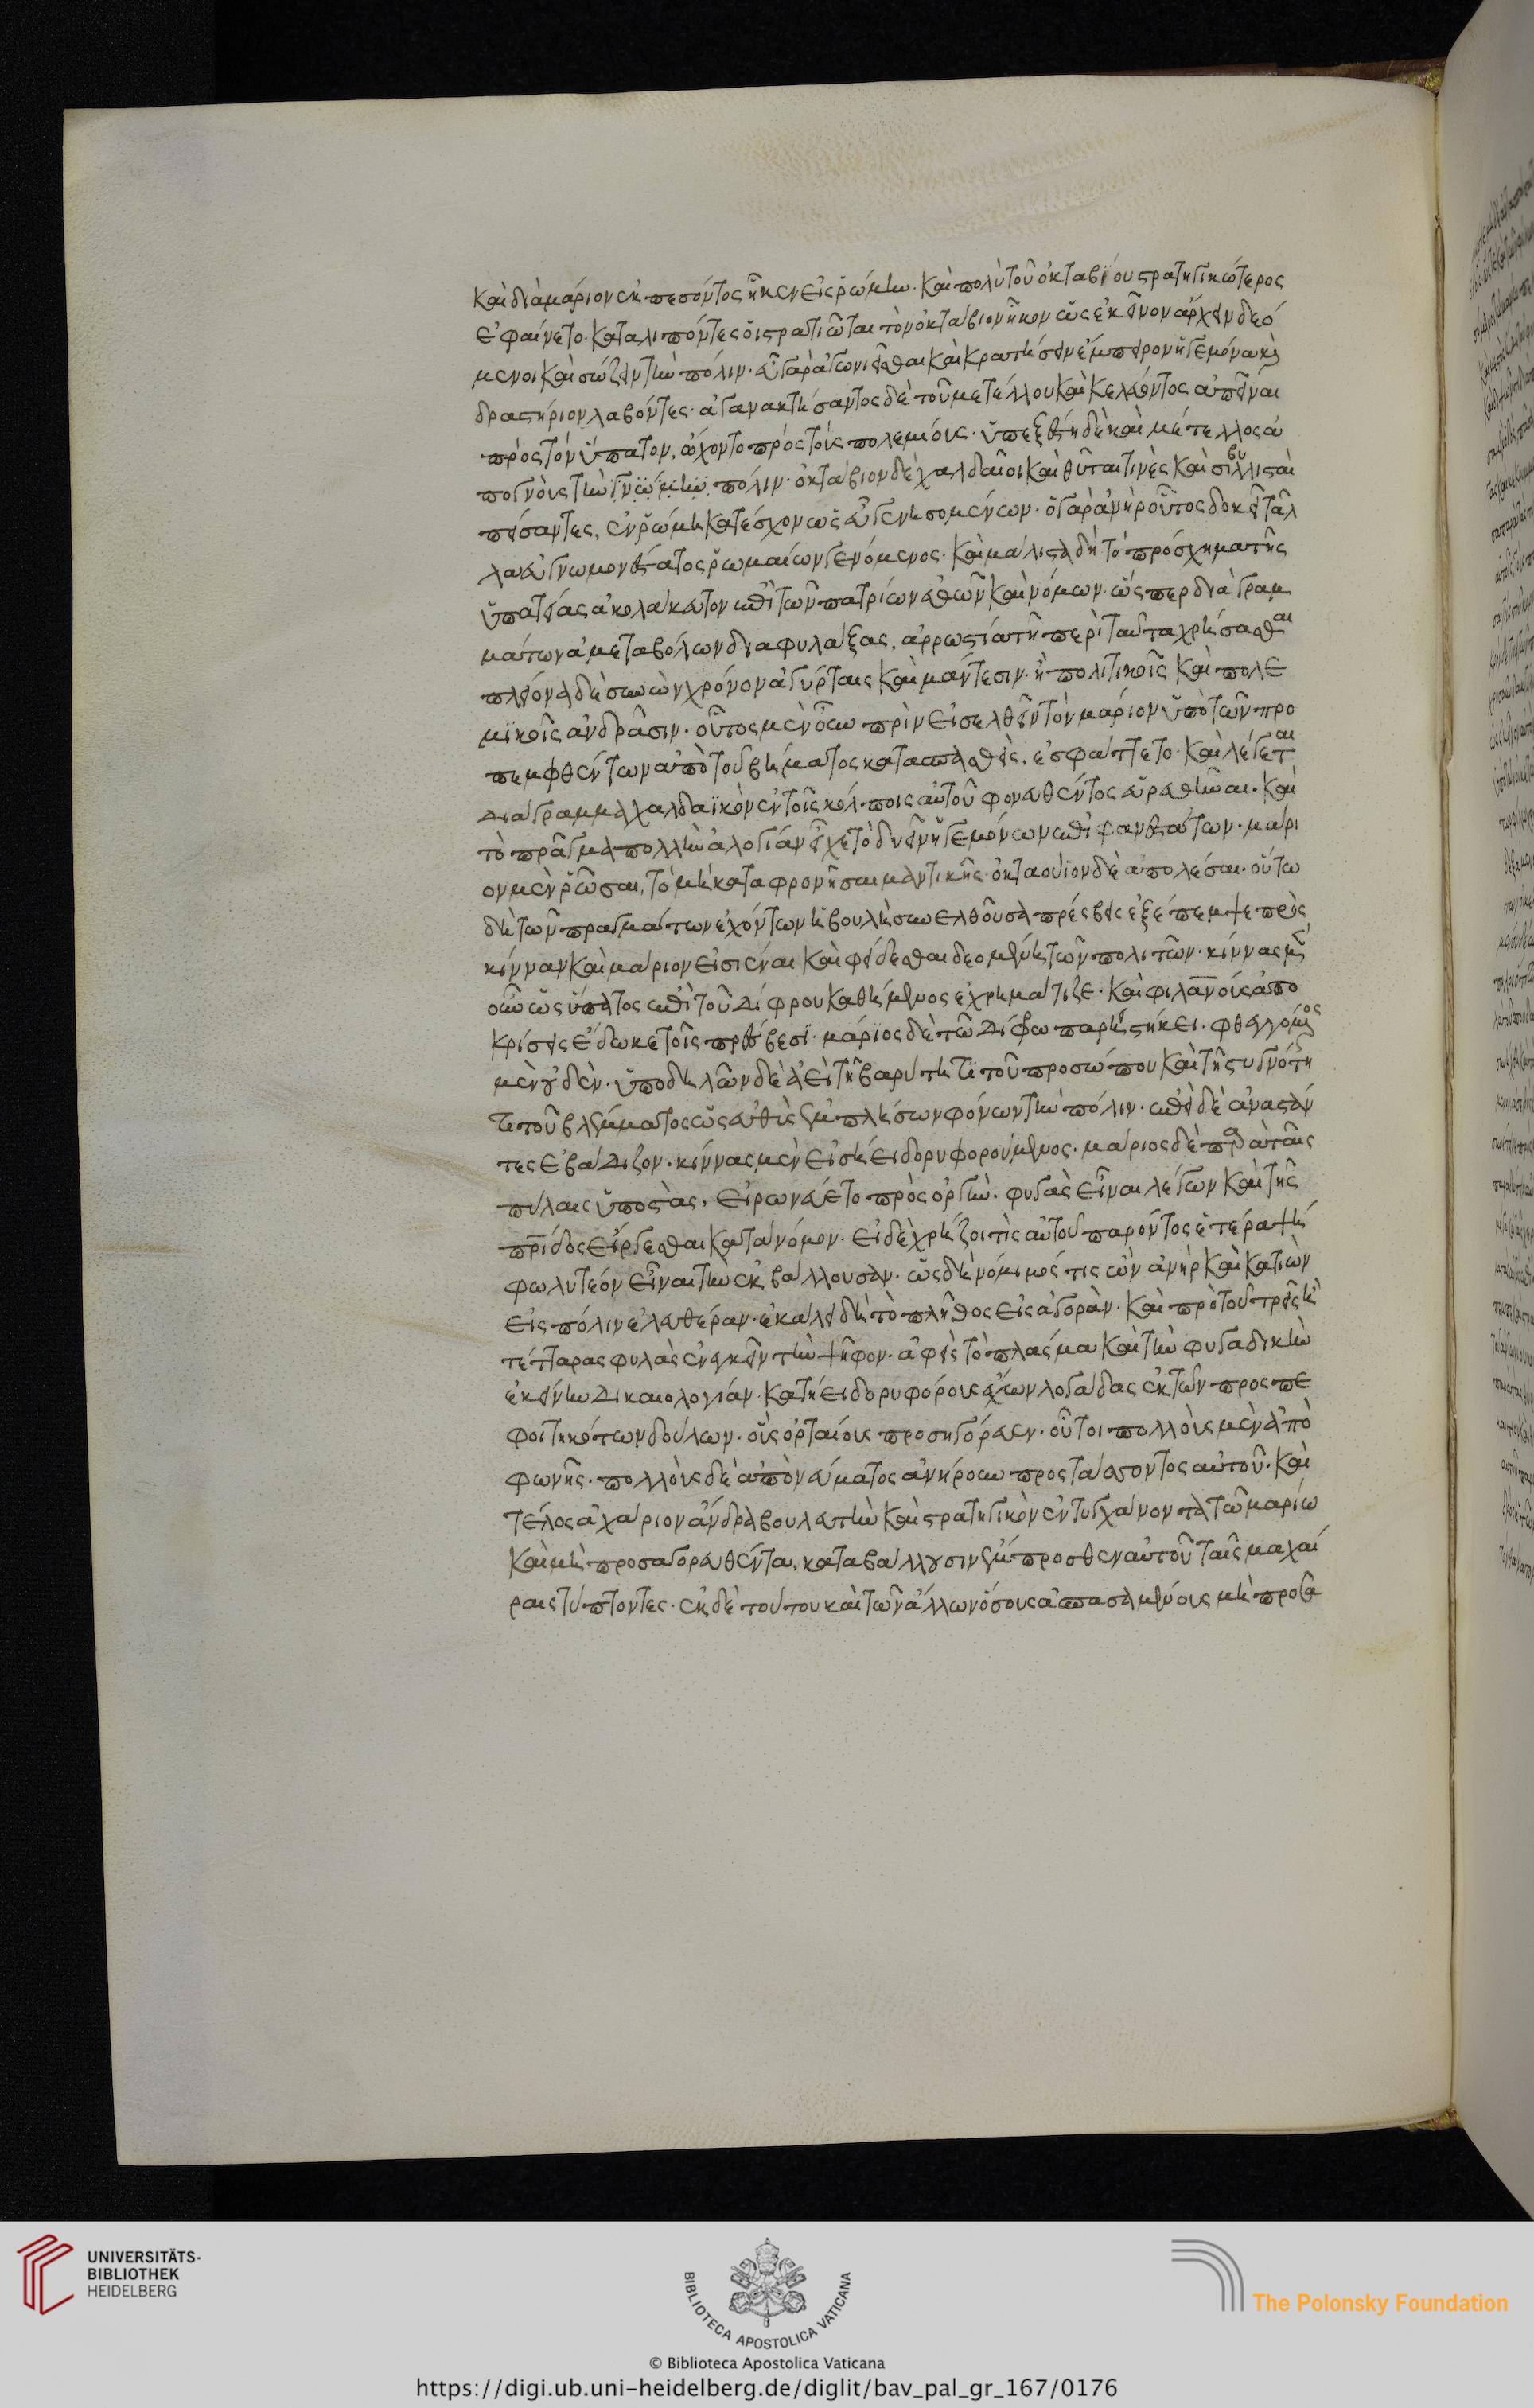 καὶ διὰ μάριον ἐκπεσόντος ἧκεν εἰς ῥώμην. καὶ πολὺ τοῦ ὀκταβίου στρατηγικώτερος
ἐφαίνετο. καταλιπόντες οἱ στρατιῶται τὸν ὀκτάβιον ἧκον ὡς ἐκεῖνον ἄρχειν δεό
μενοι καὶ σώζειν τὴν πόλιν. εὖ γὰρ ἀγωνιεῖσθαι καὶ κρατήσειν ἔμπειρον ἡγεμόνα καὶ
δραστήριον λαβόντες. ἀγανακτήσαντος δὲ τοῦ μετέλλου καὶ κελεύοντος ἀπιέναι
πρὸς τὸν ὕπατον, ὤχοντο πρὸς τοὺς πολεμίους. ὑπεξέστη δὲ καὶ μέτελλος ἀ
πογνοὺς τὴν γνώμην πόλιν. ὀκτάβιον δὲ χαλδαῖοι καὶ θύται τινὲς καὶ σιβυλλισταὶ
πείσαντες, ἐν ῥώμῃ κατέσχον ὡς εὖ γενησομένων. ὁ γὰρ ἀνὴρ οὗτος δοκεῖ τἆλ
λα εὐγνωμονέστατος ῥωμαίων γενόμενος. καὶ μάλιστα δὴ τὸ πρόσχημα τῆς
ὑπατείας ἀκολάκευτον ἐπὶ τῶν πατρίων ἐθῶν καὶ νόμων. ὥσπερ διαγραμ
μάτων ἀμεταβόλων διαφυλάξας, ἀρρωστίᾳ τῇ περὶ ταῦτα χρήσασθαι
πλείονα δὴ συνὼν χρόνον ἀγύρταις καὶ μάντεσιν. ἢ πολιτικοῖς καὶ πολε
μικοῖς ἀνδράσιν. οὗτος μὲν οὖν πρὶν εἰσελθεῖν τὸν μάριον ὑπὸ τῶν προ
πεμφθέντων ἀπὸ τοῦ βήματος κατασπασθεὶς, ἐσφάττετο. καὶ λέγεται
διάγραμμα χαλδαϊκὸν ἐν τοῖς κόλποις αὐτοῦ φονευθέντος εὑρεθῆναι. καὶ
τὸ πρᾶγμα πολλὴν ἀλογίαν εἶχε τὸ δυεῖν ἡγεμόνων ἐπιφανεστάτων. μάρι
ον μὲν ῥῶσαι, τὸ μὴ καταφρονῆσαι μαντικῆς. ὀκταούϊον δὲ ἀπολέσαι. οὕτω
δὴ τῶν πραγμάτων ἐχόντων ἡ βουλὴ συνελθοῦσα πρέσβεις ἐξέπεμψε πρὸς
κίνναν καὶ μάριον εἰσιέναι καὶ φείδεσθαι δεομένη τῶν πολιτῶν. κίννας μὲν
οὖν ὡς ὕπατος ἐπὶ τοῦ δίφρου καθήμενος ἐχρημάτιζε. καὶ φιλανους ἀπο
κρίσεις ἔδωκε τοῖς πρέσβεσι. μάριος δὲ τῷ δίφρῳ παρειστήκει. φθεγγόμενος
μὲν οὐδὲν. ὑποδηλῶν δὲ ἀεὶ τῇ βαρύτητι τοῦ προσώπου καὶ τῇ στυγνότη
τι τοῦ βλέμματος ὡς εὐθὺς ἐμπλήσων φόνων τὴν πόλιν. ἐπεὶ δὲ ἀναστάν
τες ἐβάδιζον. κίννας μὲν εἰσῄει δορυφορούμενος. μάριος δὲ παρὰ τὰς
πύλας ὑποστὰς, εἰρωνεύετο πρὸς ὀργὴν. φυγὰς εἶναι λέγων καὶ τῆς
πρίδος εἴργεσθαι κατὰ νόμον. εἰ δὲ χρῄζοι τὶς αὐτοῦ παρόντος ἑτέρᾳ ψή
φῳ λυτέον εἶναι τὴν ἐκβάλλουσαν. ὡς δὴ νόμιμός τις ὢν ἀνὴρ καὶ κατιὼν
εἰς πόλιν ἐλευθέραν. ἐκάλει δὴ τὸ πλῆθος εἰς ἀγορὰν. καὶ πρὸ τοῦ τρεῖς ἢ
τέτταρας φυλὰς ἐνεγκεῖν τὴν ψῆφον. ἀφεὶς τὸ πλάσμα καὶ τὴν φυγαδικὴν
ἐκείνην δικαιολογίαν. κατῄει δορυφόρους ἔχων λογάδας ἐκ τῶν προσπε
φοιτηκότων δούλων. οὓς ὀρταίους προσηγόρευεν. οὗτοι πολλοὺς μὲν ἀπὸ
φωνῆς. πολλοὺς δὲ ἀπὸ νεύματος ἀνῄρουν προστάσσοντος αὐτοῦ. καὶ
τέλος ἀγχάριον ἄνδρα βουλευτὴν καὶ στρατηγικὸν ἐντυγχάνοντα τῷ μαρίῳ
καὶ μὴ προσαγορευθέντα, καταβάλλουσιν ἔμπροσθεν αὐτοῦ ταῖς μαχαί
ραις τύπτοντες. ἐκ δὲ τούτου καὶ τῶν ἄλλων ὅσους ἀσπασαμένους μὴ προσ
UNIVERSITÄTS-
BIBLIOTHEK
HEIDELBERG
BIBLIOTECA APOSTOLICA VATICANA
The Polonsky Foundation
© Biblioteca Apostolica Vaticana
https://digi.ub.uni-heidelberg.de/diglit/bav_pal_gr_167/0176